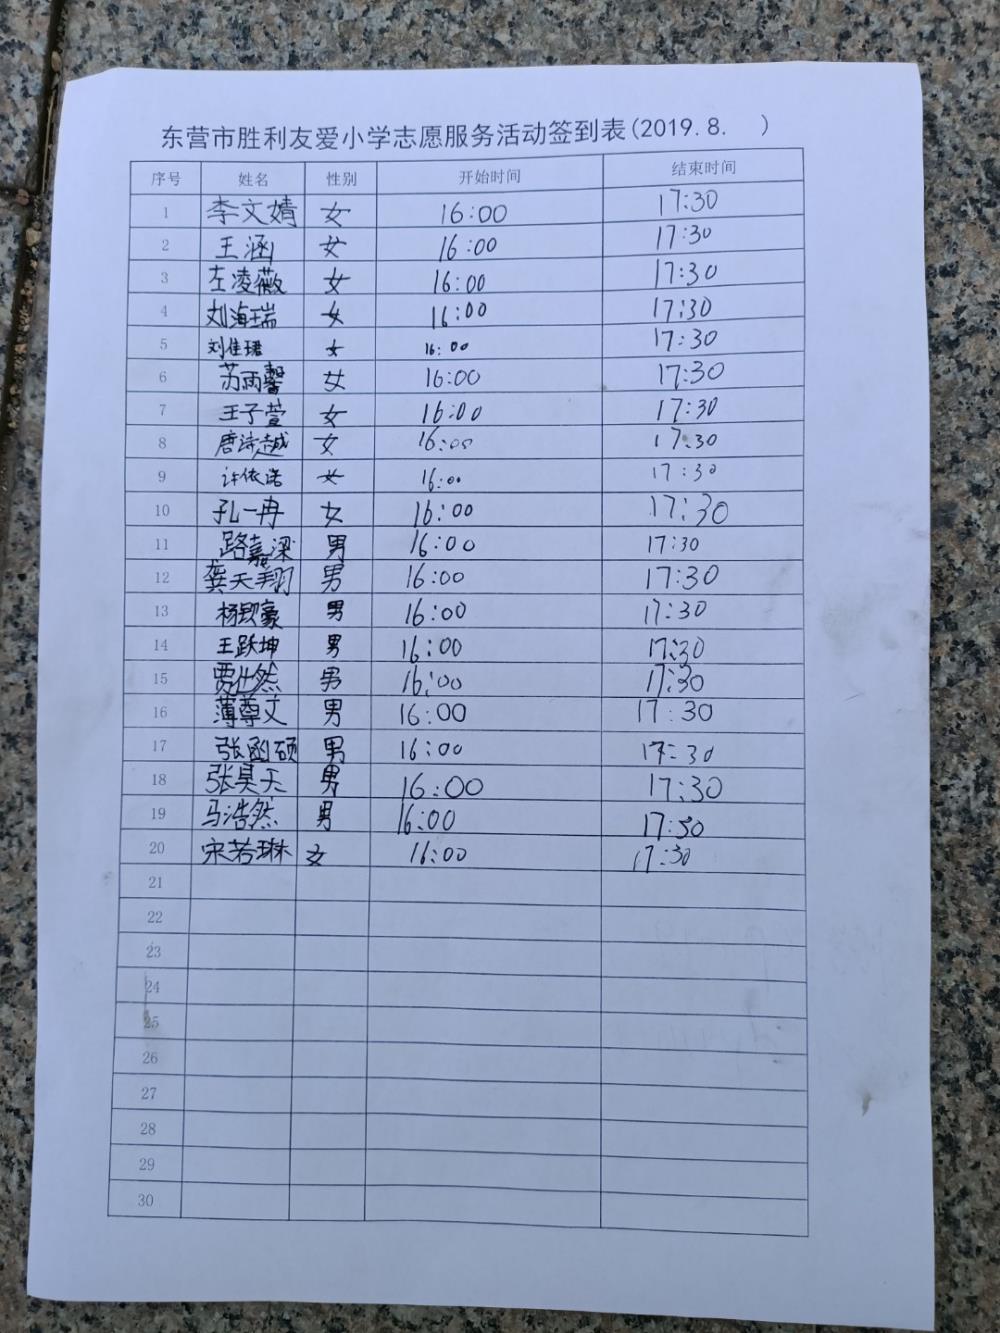 东营市胜利友爱小学志愿服务活动签到表(2019.8. )
序号 姓名 性别 开始时间 结束时间
1 李文婧 女 16:00 17:30
2 王涵 女 16:00 17:30
3 左凌薇 女 16:00 17:30
4 刘海瑞 女 16:00 17:30
5 刘佳珺 女 16:00 17:30
6 苏雨馨 女 16:00 17:30
7 王子萱 女 16:00 17:30
8 唐诗越 女 16:00 17:30
9 许依诺 女 16:00 17:30
10 孔一冉 女 16:00 17:30
11 路嘉梁 男 16:00 17:30
12 龚天翔 男 16:00 17:30
13 杨豪 男 16:00 17:30
14 王跃坤 男 16:00 17:30
15 贾然 男 16:00 17:30
16 薄尊文 男 16:00 17:30
17 张函硕 男 16:00 17:30
18 张昊天 男 16:00 17:30
19 马浩然 男 16:00 17:30
20 宋若琳 女 16:00 17:30
21
22
23
24
25
26
27
28
29
30